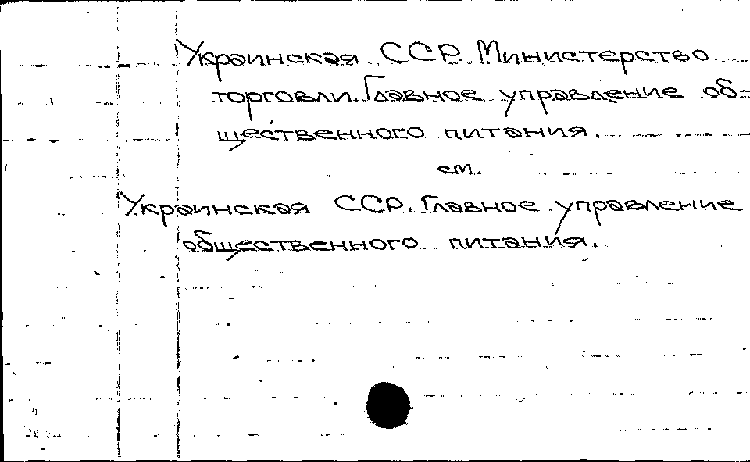 Украинская ССР. Министерство
торговли. Главное управление об-
щественного питания.
см.
Украинская ССР. Главное управление
общественного питания.